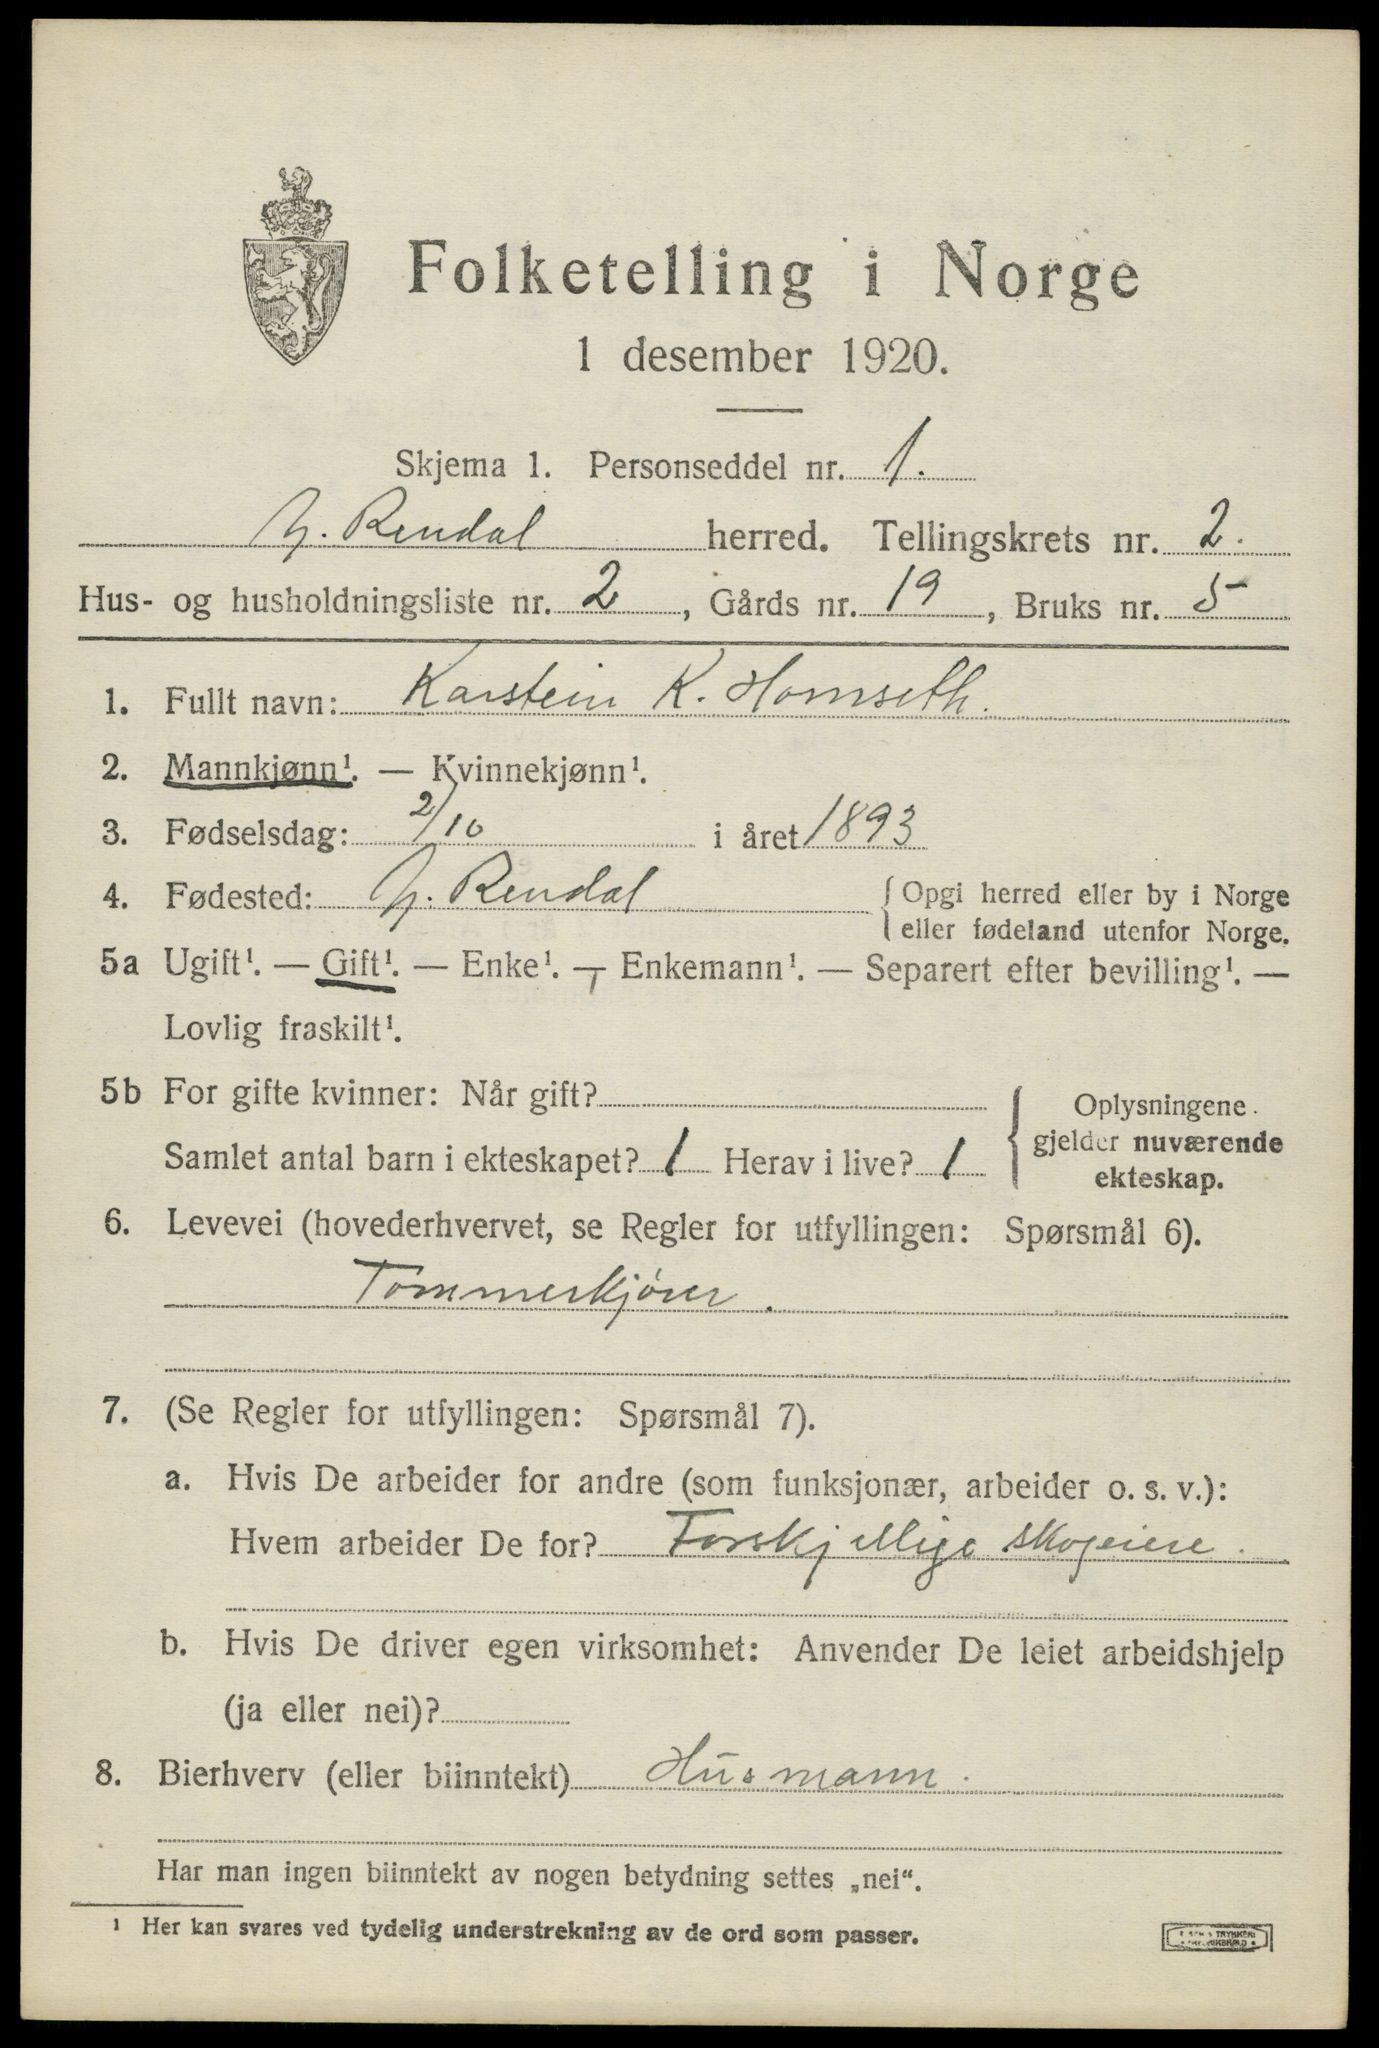 Folketelling i Norge
1 desember 1920.
Skjema 1. Personseddel nr. 1.
Y. Rendal herred. Tellingskrets nr. 2.
Hus- og husholdningsliste nr. 2, Gårds nr. 19, Bruks nr. 5
1. Fullt navn: Karstein K. Homseth.
2. Mannkjønn¹. — Kvinnekjønn¹.
3. Fødselsdag: 2/10 i året 1893
4. Fødested: Y. Rendal {Opgi herred eller by i Norge
eller fødeland utenfor Norge.
5a Ugift¹. — Gift¹. — Enke¹. — Enkemann¹. — Separert efter bevilling¹. —
Lovlig fraskilt¹.
5b For gifte kvinner: Når gift?
Samlet antal barn i ekteskapet? 1 Herav i live? 1
{Oplysningene
gjelder nuværende
ekteskap.
6. Levevei (hovederhvervet, se Regler for utfyllingen: Spørsmål 6).
Tømmerkjører.
7. (Se Regler for utfyllingen: Spørsmål 7).
a. Hvis De arbeider for andre (som funksjonær, arbeider o. s. v.):
Hvem arbeider De for? Forskjellige skogeiere.
b. Hvis De driver egen virksomhet: Anvender De leiet arbeidshjelp
(ja eller nei)?
8. Bierhverv (eller biinntekt) Husmann.
Har man ingen biinntekt av nogen betydning settes „nei“.
¹ Her kan svares ved tydelig understrekning av de ord som passer.